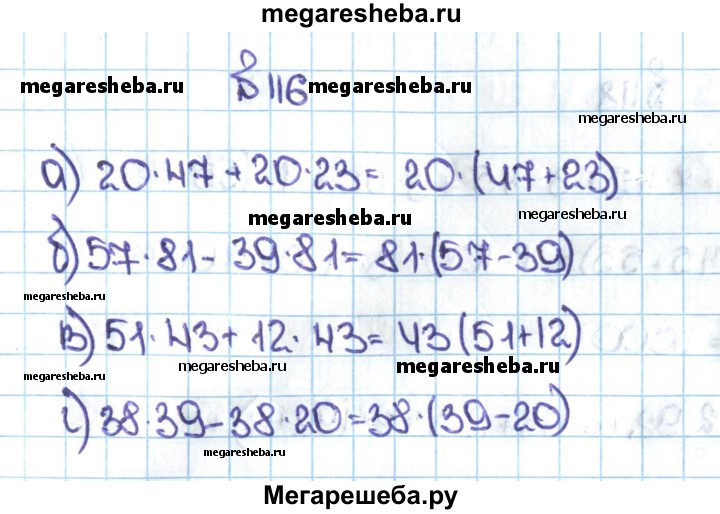 megaresheba.ru
№ 116
megaresheba.ru megaresheba.ru
megaresheba.ru
а) 20·47+20·23= 20·(47+23)
megaresheba.ru megaresheba.ru
б) 57·81-39·81=81·(57-39)
megaresheba.ru
в) 51·43+12·43=43(51+12)
megaresheba.ru megaresheba.ru megaresheba.ru
г) 38·39-38·20=38·(39-20)
megaresheba.ru
Мегарешеба.ру